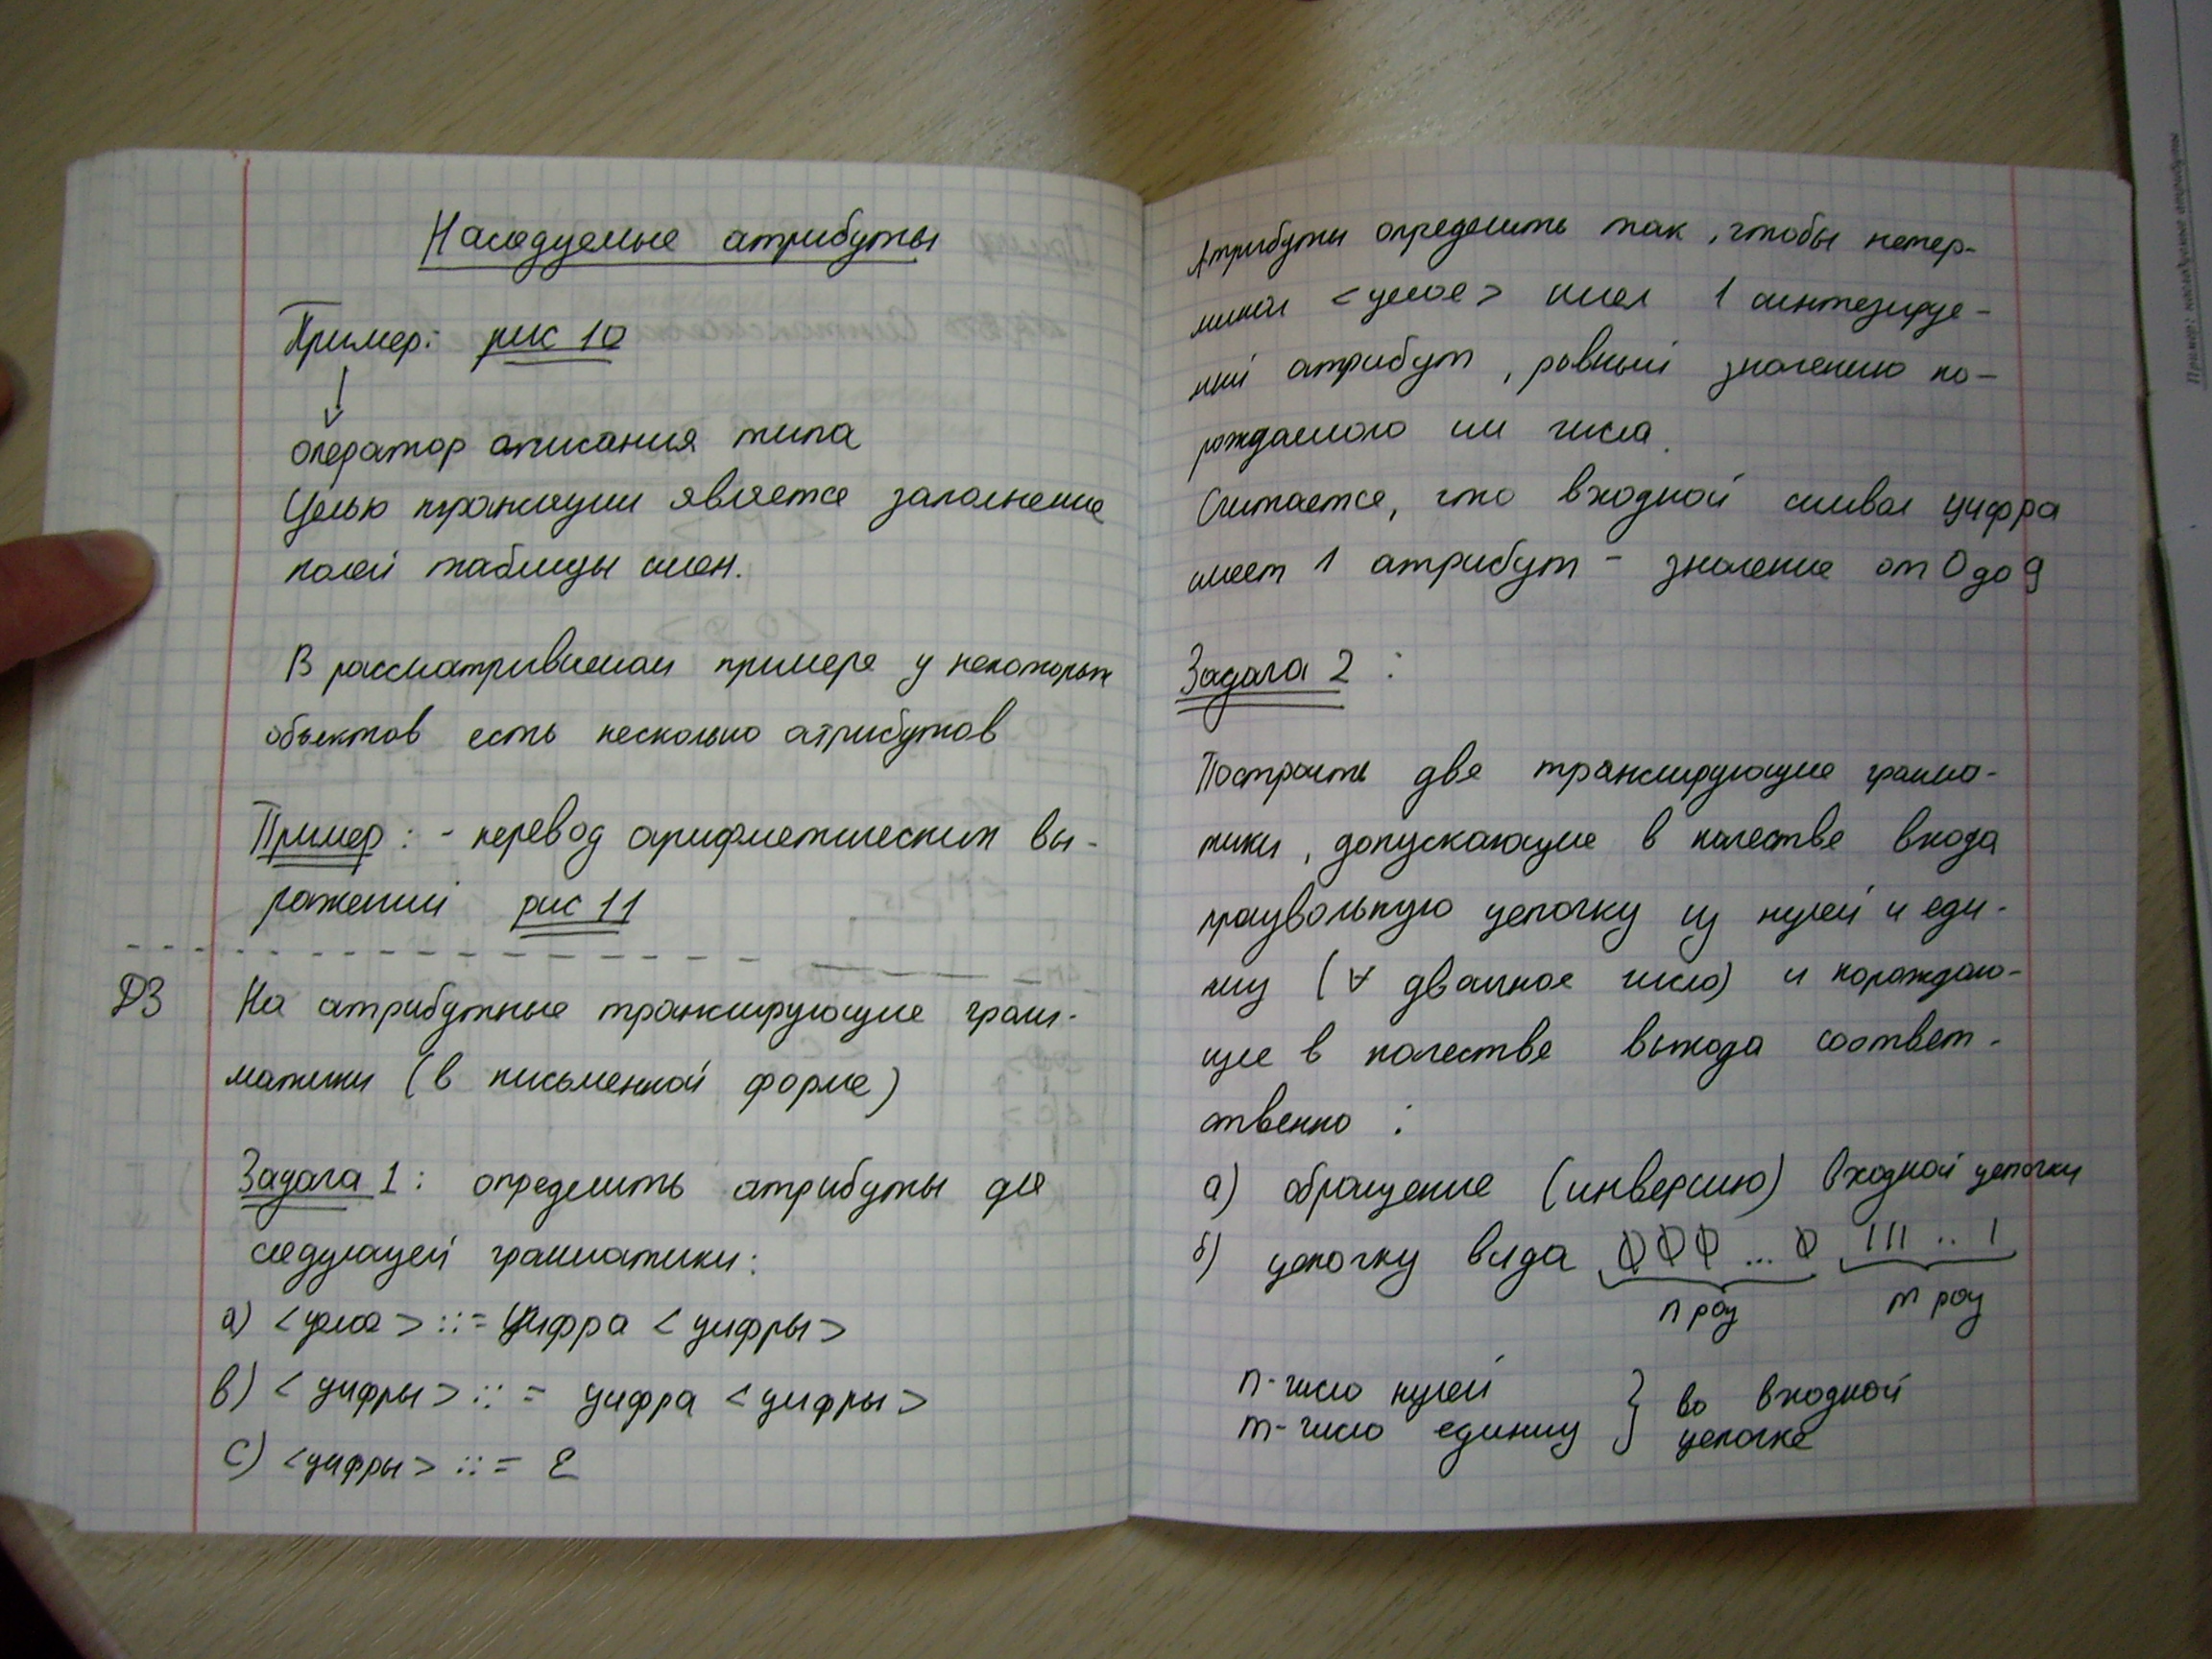 Наследуемые атрибуты
Пример: рис 10
оператор описания типа
Целью трансляции является заполнение
полей таблицы имен.
В рассматриваемом примере у некоторых
объектов есть несколько атрибутов
Пример: - перевод арифметических вы-
ражений рис 11
ДЗ На атрибутные транслирующие грам-
матики (в письменной форме)
Задача 1: определить атрибуты для
следующей грамматики:
а) <целое> ::= цифра <цифры>
в) <цифры> ::= цифра <цифры>
с) <цифры> ::= ε
Атрибуты определить так, чтобы нетер-
минал <целое> имел 1 синтезируе-
мый атрибут, равный значению по-
рождаемого им числа.
Считается, что входной символ цифра
имеет 1 атрибут - значение от 0 до 9
Задача 2:
Построить две транслирующие грамма-
тики, допускающие в качестве входа
произвольную цепочку из нулей и еди-
ниц (∀ двоичное число) и порождаю-
щие в качестве выхода соответ-
ственно:
а) обращение (инверсию) входной цепочки
б) цепочку вида 000...0 111..1
n раз m раз
n-число нулей
m-число единиц } во входной
цепочке
Пример: наследуемые атрибуты